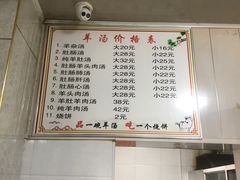 羊汤价格表
1. 羊杂汤 大20元 小16元
2. 肚肠汤 大25元 小22元
3. 纯羊肚汤 大32元 小25元
4. 肚肠羊头肉汤 大25元 小22元
5. 肚肠肺汤 大25元 小22元
6. 肚肠肝汤 大25元 小22元
7. 肚肠心汤 大25元 小22元
8. 羊头肉汤 大25元 小22元
9. 羊肚羊肉汤 38元
10. 纯羊肉汤 42元
11. 烧饼 2元
品一碗羊汤 吃一个烧饼